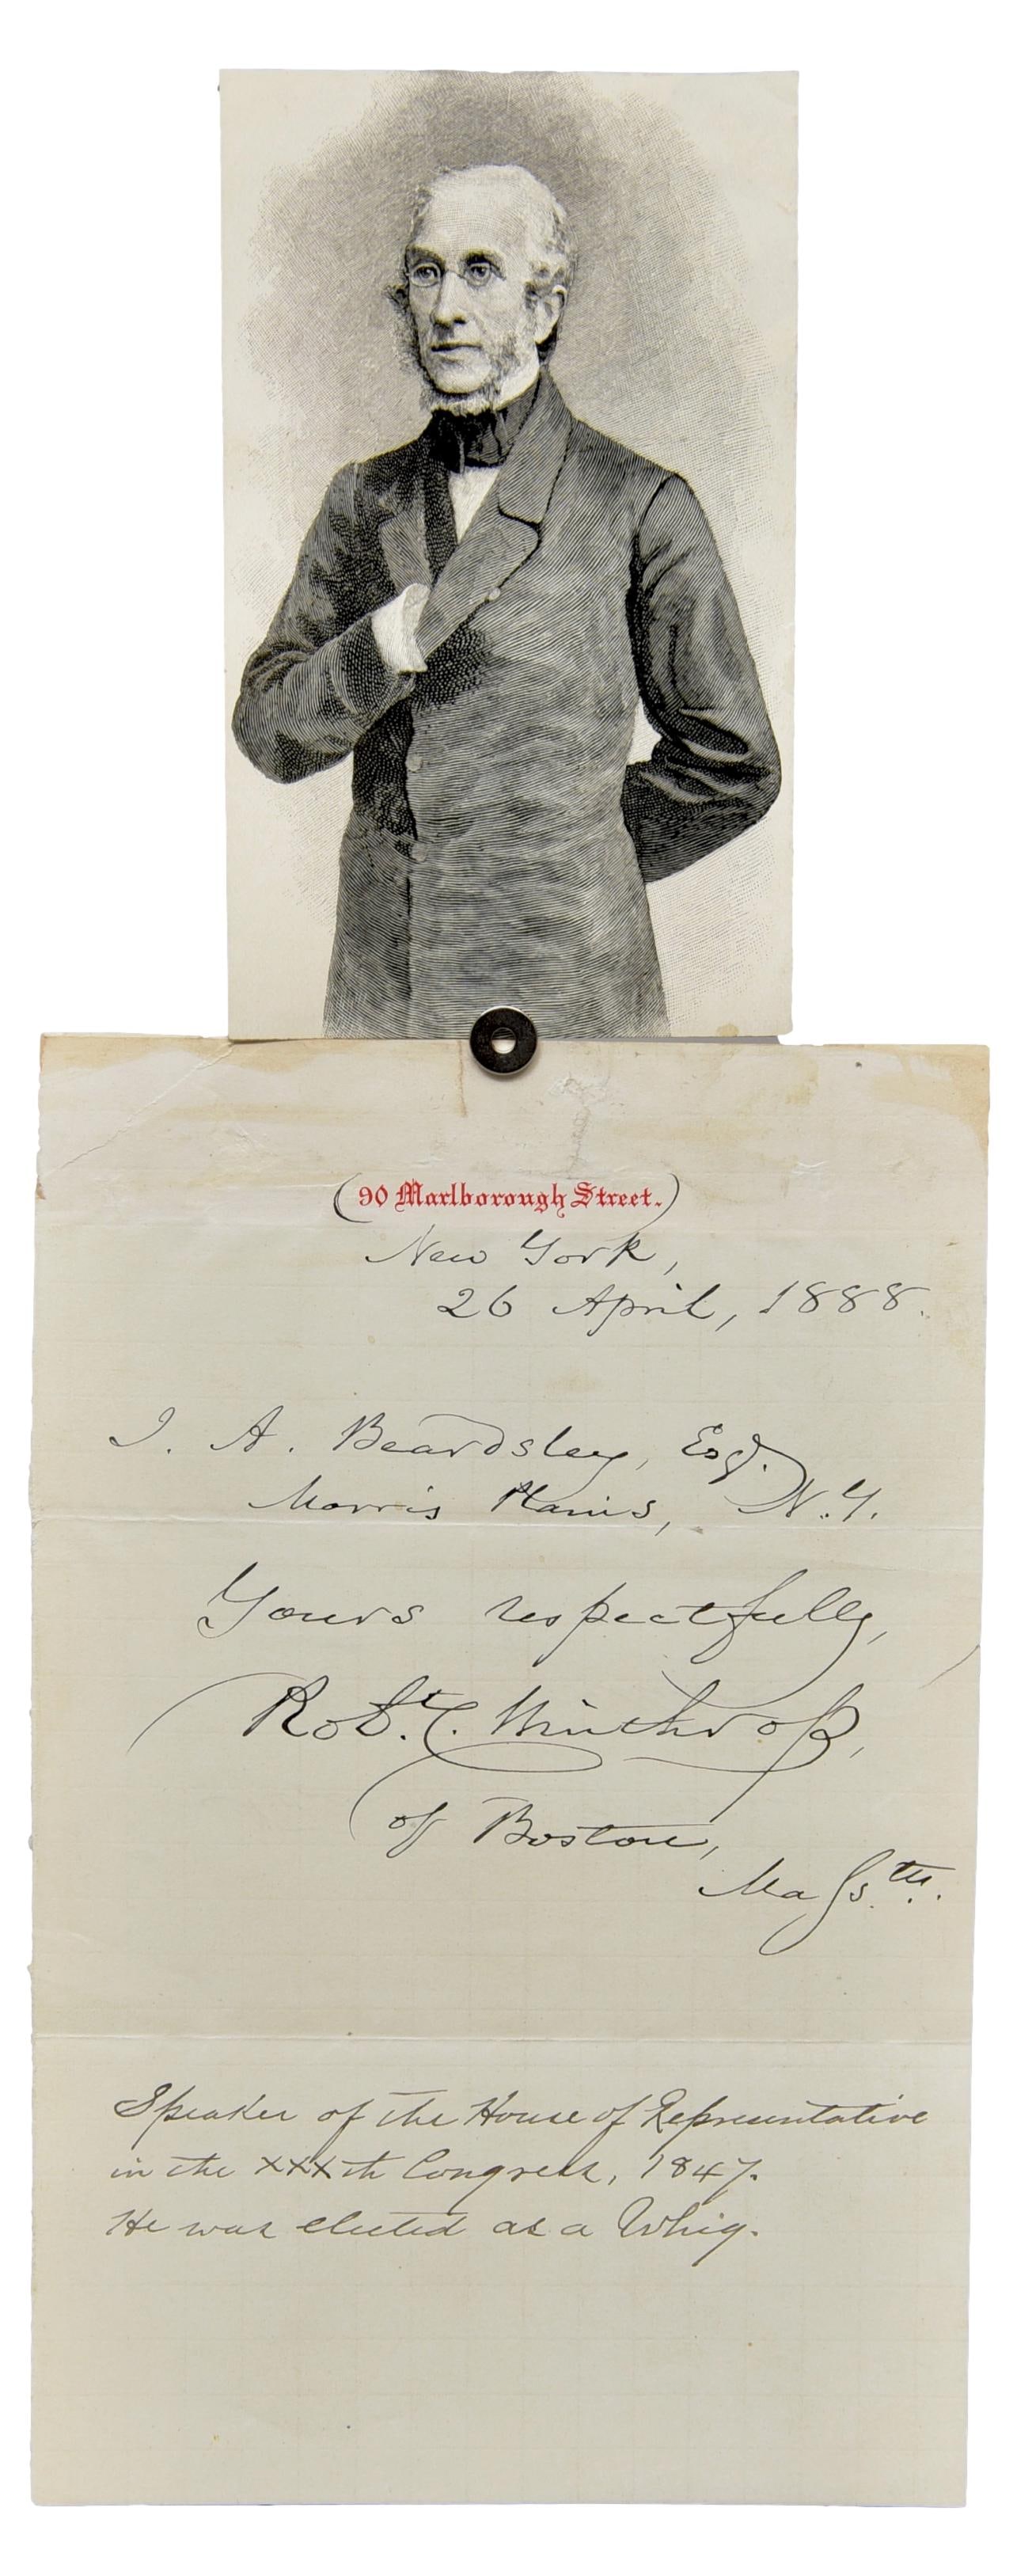 (90 Marlborough Street.)
New York,
26 April, 1888.
I. A. Beardsley, Esq.
Morris Plains, N.Y.
Yours respectfully,
Robt. C. Winthrop,
of Boston,
Masstts.
Speaker of the House of Representative
in the XXXth Congress, 1847.
He was elected as a Whig.